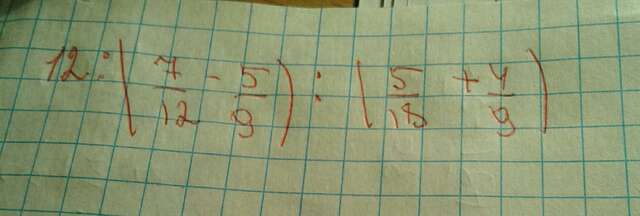 12:(7/12 - 5/9):(5/18 + 4/9)